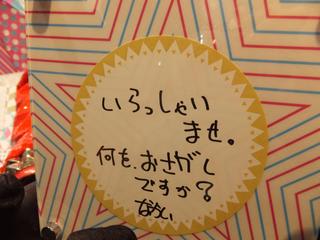 いらっしゃい
ませ。
何を、おさがし
ですか？